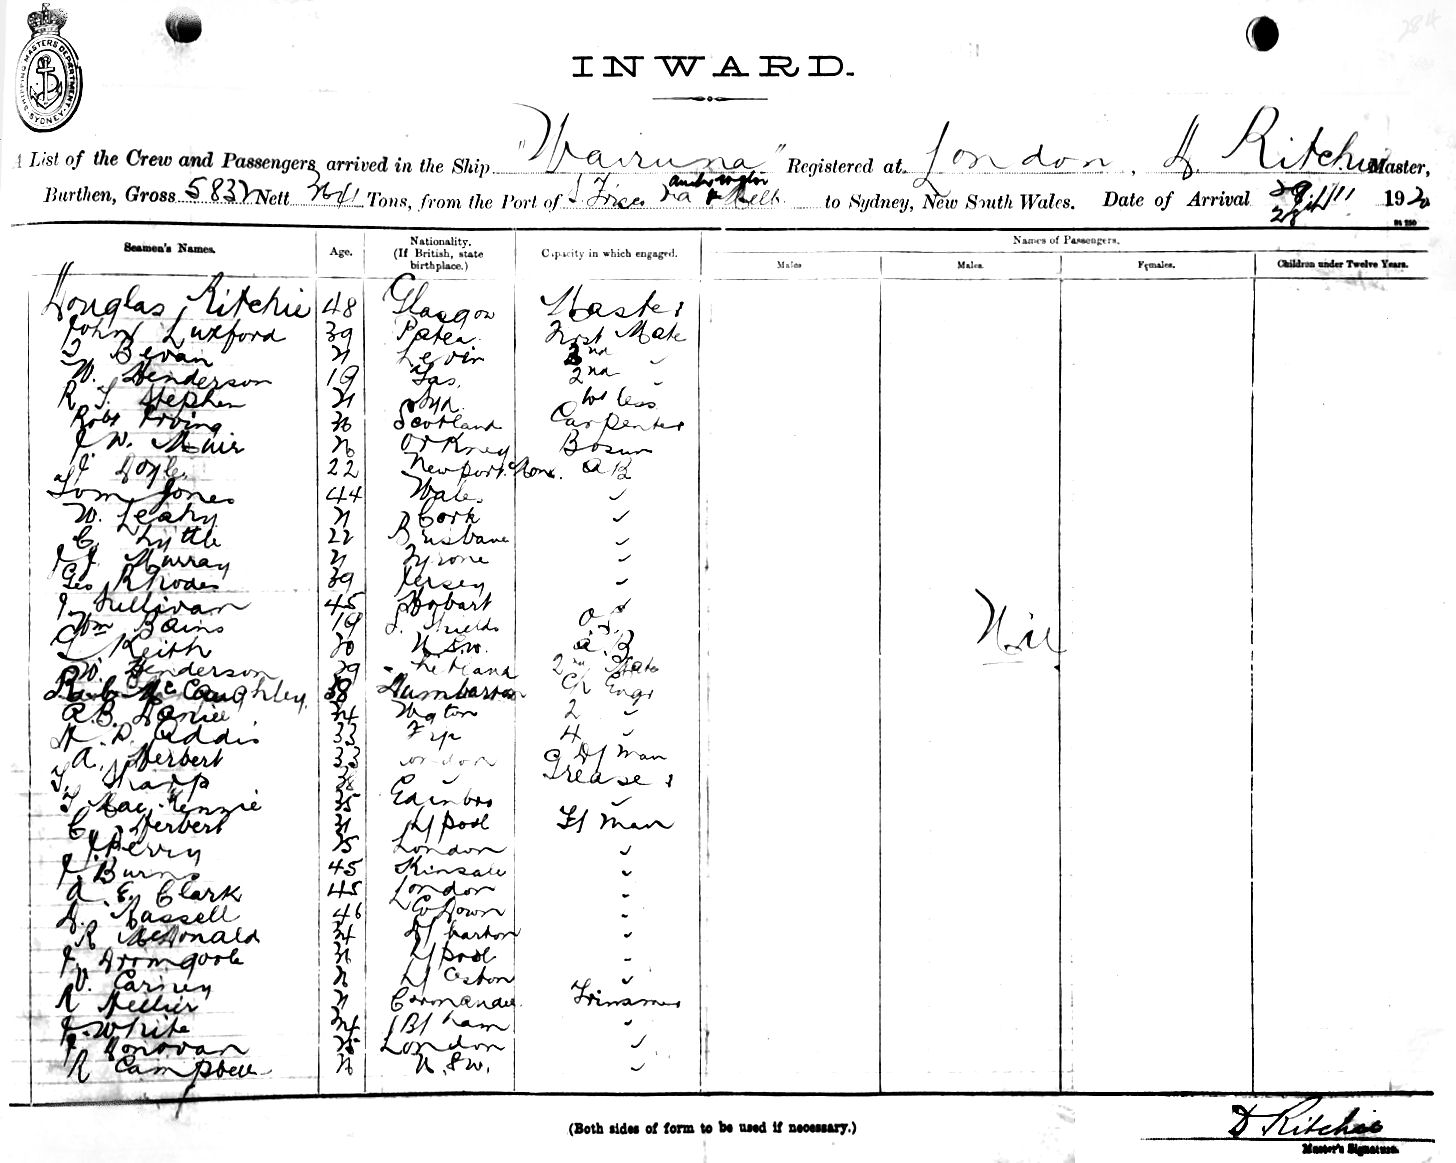 SHIPPING MASTERS DEPARTMENT
SYDNEY
INWARD.
A List of the Crew and Passengers arrived in the Ship "Wairuna" Registered at London, D. Ritchie Master,
Burthen, Gross 5832 Nett Tons, from the Port of S. Frisco via & Melb. to Sydney, New South Wales. Date of Arrival 1920
Seamen's Names. Age. Nationality. (If British, state birthplace.) Capacity in which engaged. Names of Passengers.
Males Males. Females. Children under Twelve Years.
Douglas Ritchie 48 Glasgow Master
John Luxford 39 Patea First Mate
Bevan Levin 2nd "
W. Henderson 19 Tas. 2nd "
R. Stephen Syd. W'less
Robt Irving Scotland Carpenter
J. W. Muir Orkney Bosun
J. Doyle 22 Newport Mon. AB
Tom Jones 44 Wales "
W. Leahy Cork "
C. Lyttle 22 Brisbane "
J. J. Murray Tyrone "
Geo Rhodes 39 Jersey "
J. Sullivan 45 Hobart "
Wm Bains 19 S. Shields O.S.
Keith 30 N.S.W. A.B
W. Henderson 39 Shetland 2nd Mate
McCaughley 38 Dumbarton Ch Engr
R.B. Daniel 34 Wgton 2 "
Addis 33 4 "
A. Herbert 33 London
T. Sharp 38 " Greaser
T. MacKenzie 35 Edinbro "
C. Herbert L/pool F/man
J. Perry London "
J. Burns 45 Kinsale "
A. E. Clark 45 London "
D. Massell 46 Co Down "
R McDonald 34 D/barton "
J. Dromgoole L/pool "
V. Carney "
R Hellier Trimmer
J. White 34 B/ham "
J. Donovan London "
R Campbell N.S.W. "
Nil
(Both sides of form to be used if necessary.)
D Ritchie
Master's Signature.